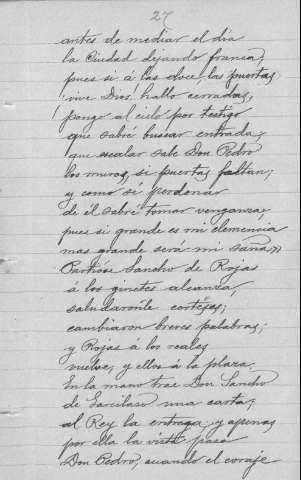 27
antes de mediar el día
la Ciudad dejando franca,
pues si á las doce las puertas
¡vive Dios! hallo cerradas,
pongo al cielo por testigo
que sabré buscar entrada,
que escalar sabe Don Pedro
los muros, si puertas faltan;
y como sé perdonar
de él sabré tomar venganza,
pues si grande es mi clemencia
mas grande será mi saña."
Partióse Sancho de Rojas
á los ginetes alcanza,
saludáronle cortéses;
cambiaron breves palabras;
y Rojas á los reales
vuelve, y ellos á la plaza.
En la mano trae Don Sancho
de Garcilaso una carta,
al Rey la entrega; y apenas
por ella la vista pasa
Don Pedro, cuando el coraje